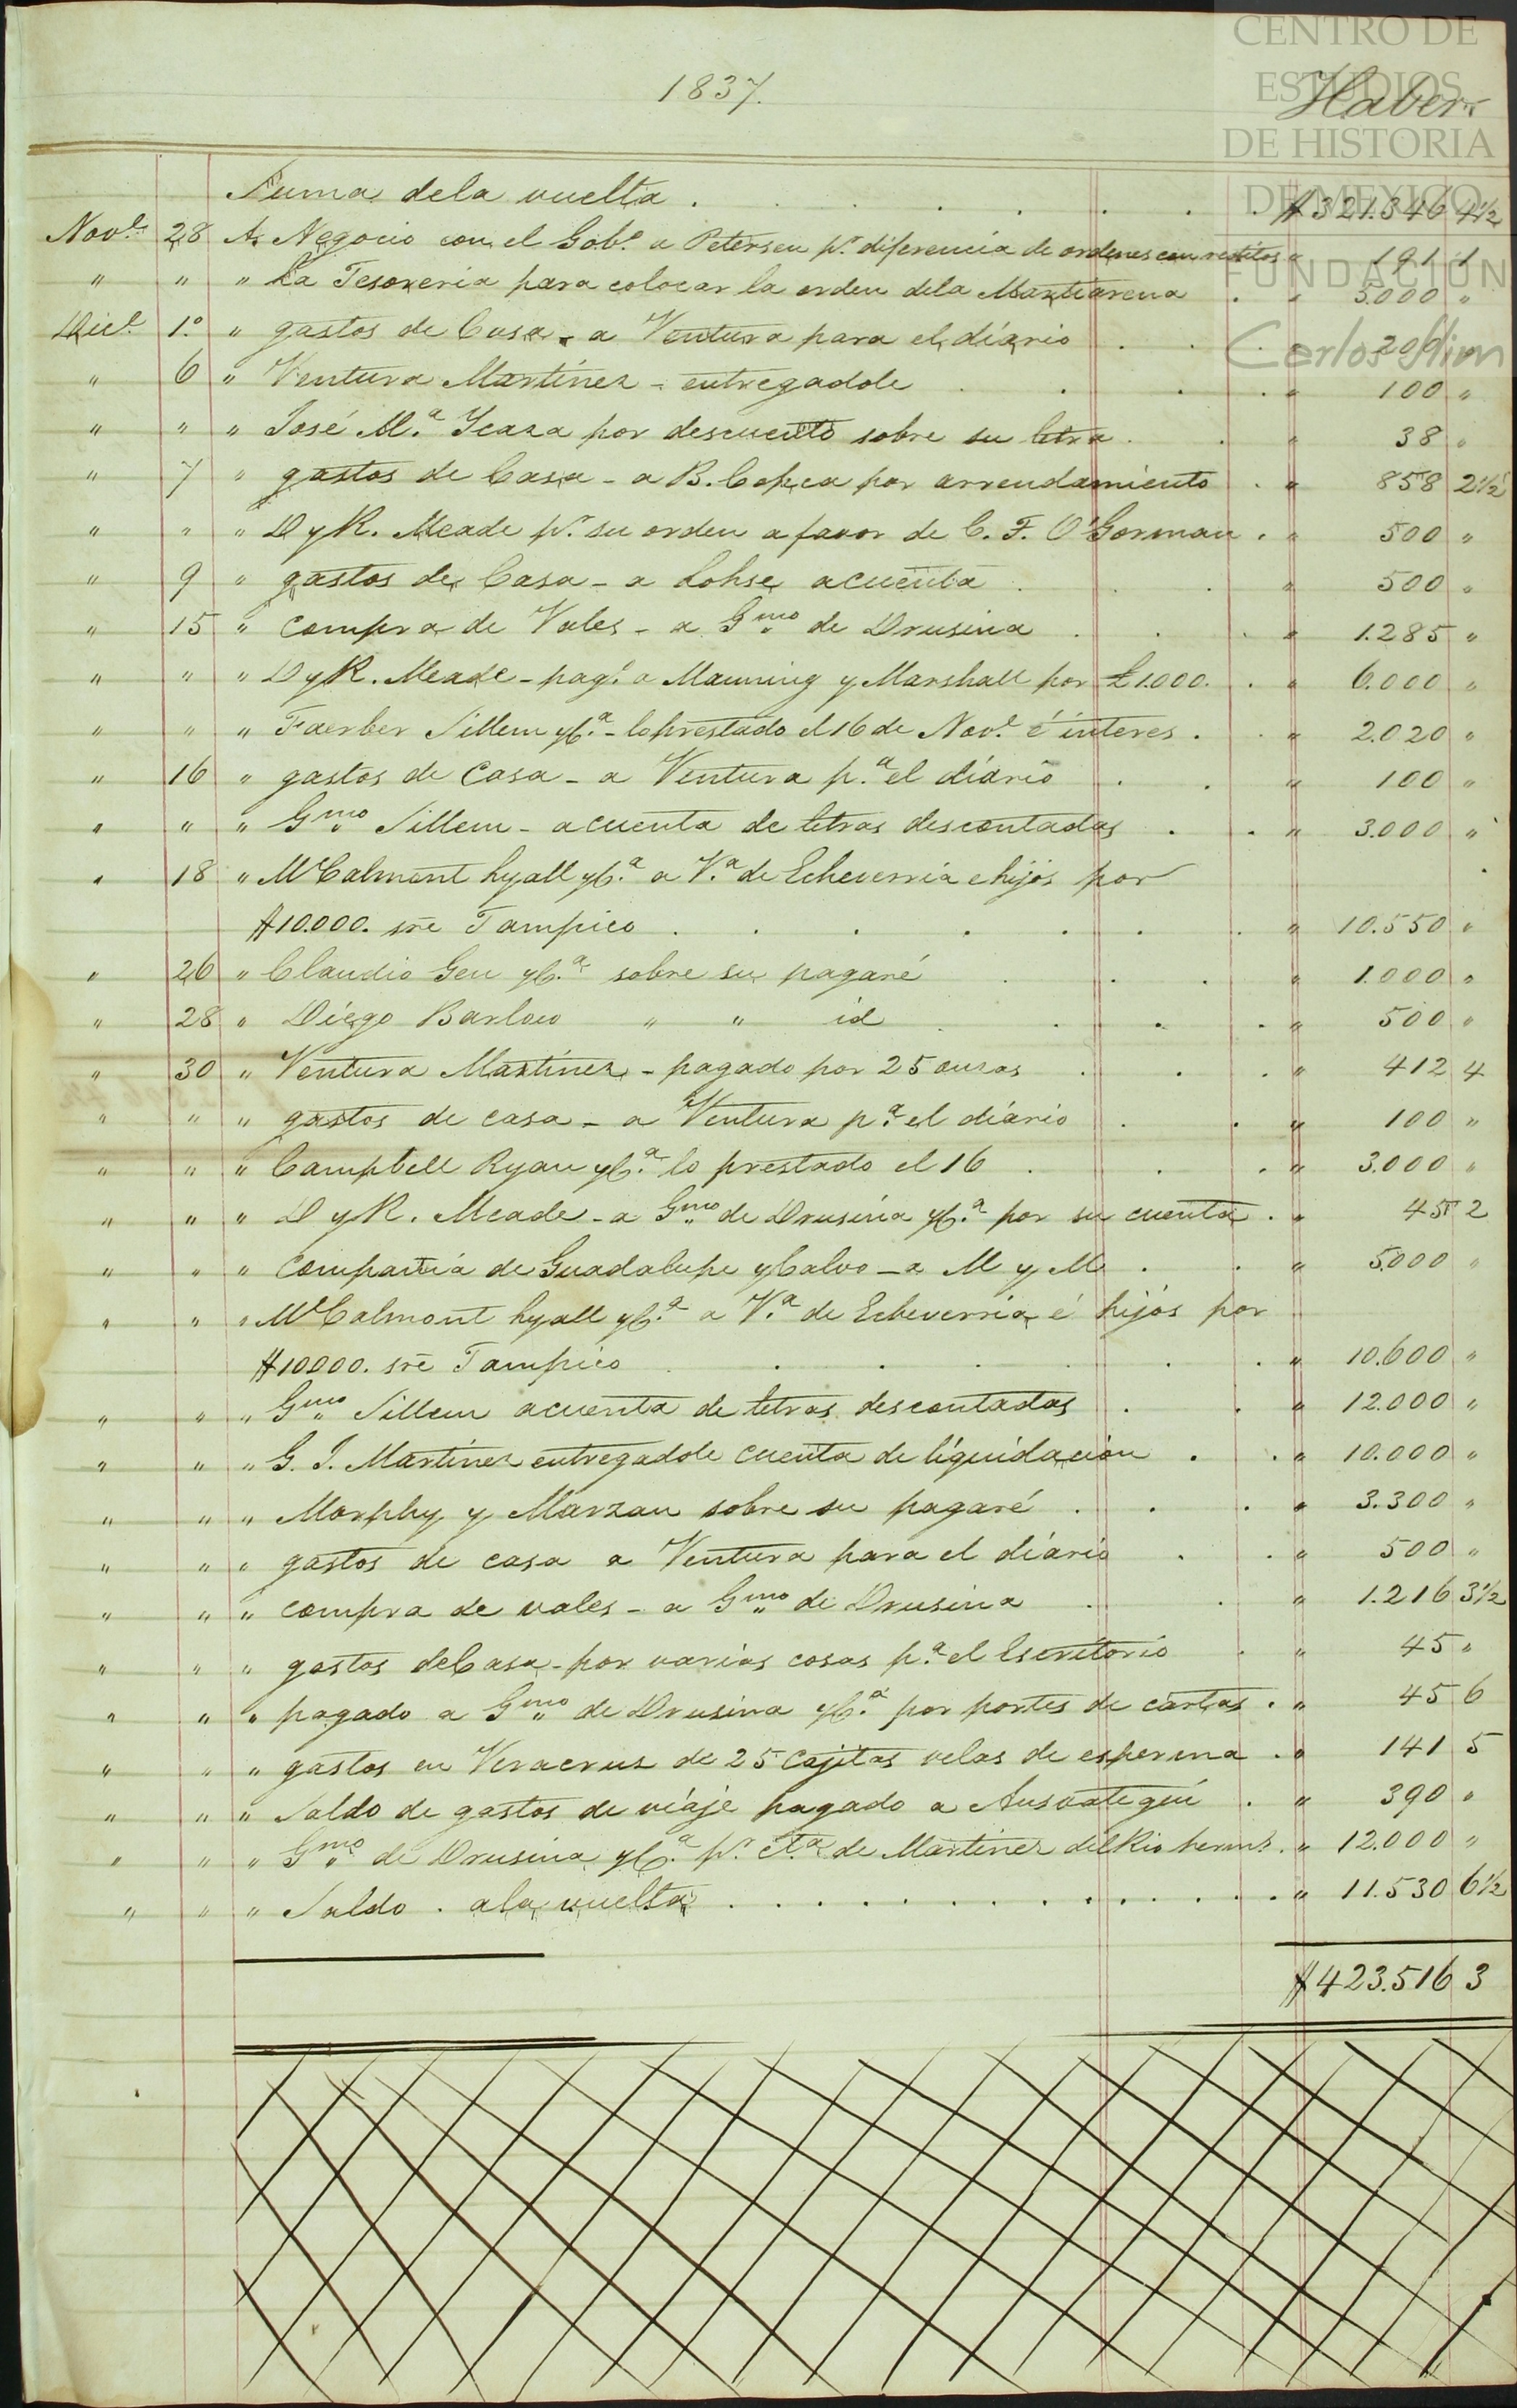 CENTRO DE
ESTUDIOS
DE HISTORIA
DE MEXICO
FUNDACIÓN
Carlos Slim
1837.
Haber
Suma dela vuelta . . . . . . . $321.346 4½
Nov.e 28 A. Negocio con el Gob.o a Petersen p.r diferencia de ordenes con reditos " 191 1
" " " La Tesoreria para colocar la orden dela Martiarena . " 5.000 "
Dic.e 1.o " gastos de Casa - a Ventura para el diário . . . " 200 "
" 6 " Ventura Martinez - entregadole . . . . " 100 "
" " " José M.a Ycaza por descuento sobre su letra . . " 38 "
" 7 " gastos de Casa - a B. Copca por arrendamiento . " 858 2½
" " " D y R. Meade p.r su orden a favor de C. F. O'Gorman . " 500 "
" 9 " gastos de Casa - a Lohse acuenta . . . " 500 "
" 15 " compra de Vales - a Gmo de Drusina . . . " 1.285 "
" " " D y R. Meade - pag.o a Manning y Marshall por £1.000. . " 6.000 "
" " " Faerber Sillem yC.a - lo prestado el 16 de Nov.e é interes . . " 2.020 "
" 16 " gastos de casa - a Ventura p.a el diário . . " 100 "
" " " Gmo Sillem - acuenta de letras descontadas . . " 3.000 "
" 18 " McCalmont Lyall yC.a a V.a de Echeverria e hijos por
$10.000. sre Tampico . . . . . . . " 10.550 "
" 26 " Claudio Gen yC.a sobre su pagaré . . . " 1.000 "
" 28 " Diego Barlow " " id . . . . " 500 "
" 30 " Ventura Martinez - pagado por 25 onzas . . . " 412 4
" " " gastos de casa - a Ventura p.a el diário . . " 100 "
" " " Campbell Ryan yC.a lo prestado el 16 . . . " 3.000 "
" " " D y R. Meade - a Gmo de Drusina yC.a por su cuenta . " 45 2
" " " Compañia de Guadalupe yCalvo - a M y M . . " 5.000 "
" " " McCalmont Lyall yC.a a V.a de Echeverria é hijos por
$10000. sre Tampico . . . . . . " 10.600 "
" " " Gmo Sillem acuenta de letras descontadas . . " 12.000 "
" " " G. J. Martinez entregadole cuenta de liquidacion . . " 10.000 "
" " " Morphy y Marzan sobre su pagaré . . . " 3.300 "
" " " gastos de casa a Ventura para el diário . . " 500 "
" " " compra de vales - a Gmo de Drusina . . " 1.216 3½
" " " gastos deCasa - por varias cosas p.a el Escritório . " 45 "
" " " pagado a Gmo de Drusina yC.a por portes de cartas . " 45 6
" " " gastos en Veracruz de 25 cajitas velas de esperma . " 141 5
" " " Saldo de gastos de viáje pagado a Ansoategui . " 390 "
" " " Gmo de Drusina yC.a p.r cta de Martinez delRio herms. " 12.000 "
" " " Saldo . ala vuelta . . . . . . . . . . . " 11.530 6½
$423.516 3